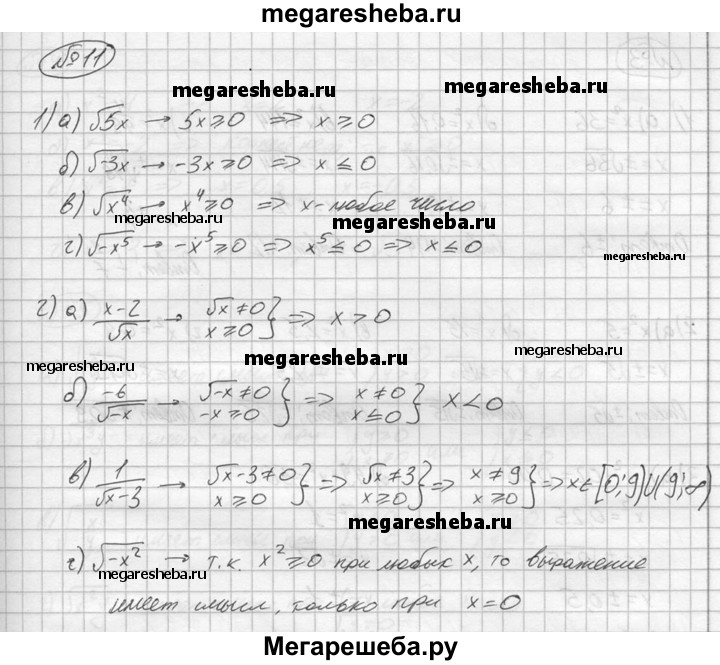 megaresheba.ru
№11
megaresheba.ru megaresheba.ru
1) а) √5x → 5x ≥ 0 => x ≥ 0
б) √-3x → -3x ≥ 0 => x ≤ 0
в) √x⁴ → x⁴ ≥ 0 => x - любое число
megaresheba.ru megaresheba.ru
г) √-x⁵ → -x⁵ ≥ 0 => x⁵ ≤ 0 => x ≤ 0
megaresheba.ru
2) а) (x-2)/√x → √x ≠ 0, x ≥ 0} => x > 0
megaresheba.ru megaresheba.ru megaresheba.ru
б) -6/√-x → √-x ≠ 0, -x ≥ 0} => x ≠ 0, x ≤ 0} x < 0
в) 1/(√x-3) → √x-3 ≠ 0, x ≥ 0} => √x ≠ 3, x ≥ 0} => x ≠ 9, x ≥ 0} => x ∈ [0; 9) ∪ (9; ∞)
megaresheba.ru
г) √-x² → т.к. x² ≥ 0 при любых x, то выражение
megaresheba.ru
имеет смысл, только при x = 0
Мегарешеба.ру